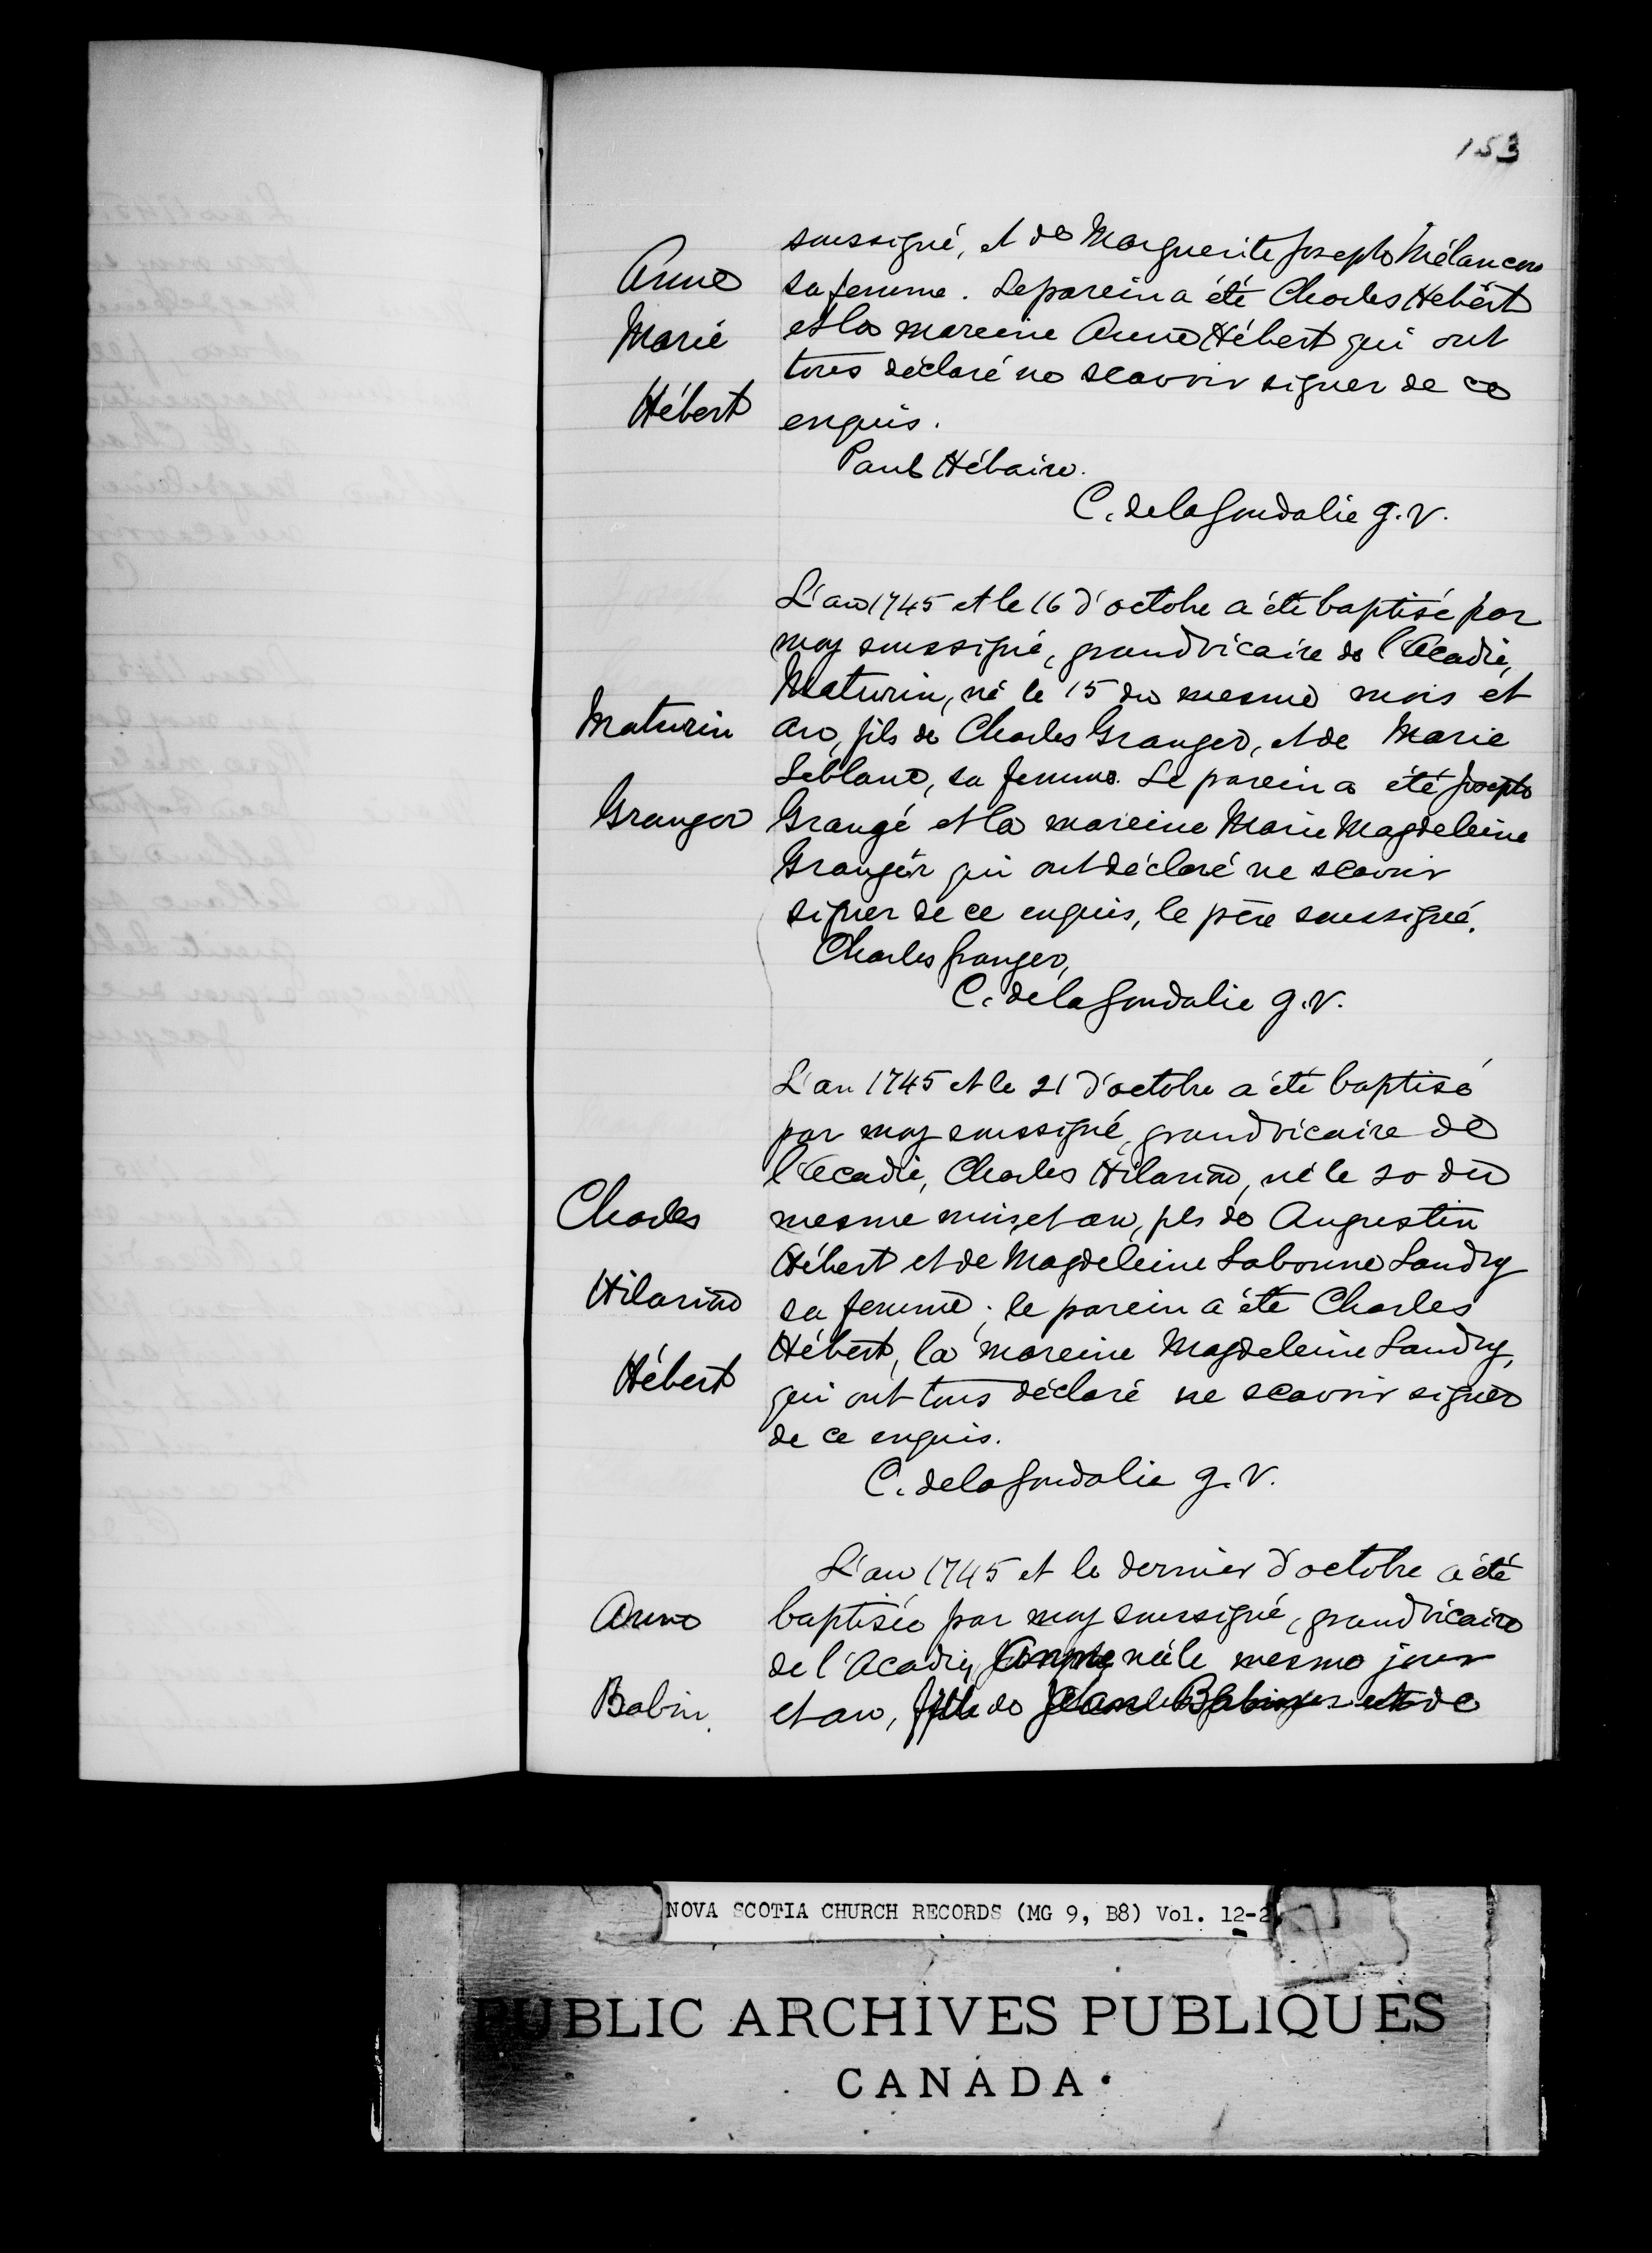 153
Anne
Marie
Hébert
soussigné, et de Marguerite Joseph Mélancon
sa femme. Le parein a été Charles Hébert
et la mareine Anne Hébert qui ont
tous déclaré ne scavoir signer de ce
enquis.
Paul Hébaire.
C. de la Goudalie g.v.
Maturin
Granger
L'an 1745 et le 16 d'octobre a été baptisé par
moy soussigné, grand vicaire de l'Acadie,
Maturin, né le 15 du mesme mois et
an, fils de Charles Granger, et de Marie
Leblanc, sa femme. Le parein a été Joseph
Grangé et la mareine Marie Magdeleine
Granger qui ont déclaré ne scavoir
signer de ce enquis, le père soussigné.
Charles Granger,
C. de la Goudalie g.v.
Charles
Hilarino
Hébert
L'an 1745 et le 21 d'octobre a été baptisé
par moy soussigné, grand vicaire de
l'Acadie, Charles Hilarino, né le 20 du
mesme mois et an, fils de Augustin
Hébert et de Magdeleine Labonne Landry
sa femme; le parein a été Charles
Hébert, la mareine Magdeleine Landry,
qui ont tous déclaré ne scavoir signer
de ce enquis.
C. de la Goudalie g.v.
Anne
Babin.
L'an 1745 et le dernier d'octobre a été
baptisée par moy soussigné, grand vicaire
de l'Acadie, Anne née le mesme jour
et an, fille de Babin et de
NOVA SCOTIA CHURCH RECORDS (MG 9, B8) Vol. 12-2
PUBLIC ARCHIVES PUBLIQUES
CANADA